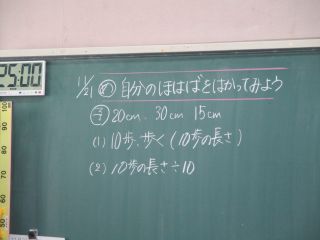 25:00
11/21 め 自分のほはばをはかってみよう
予 20cm. 30cm 15cm
(1) 10歩、歩く(10歩の長さ)
(2) 10歩の長さ÷10
100
90
80
70
60